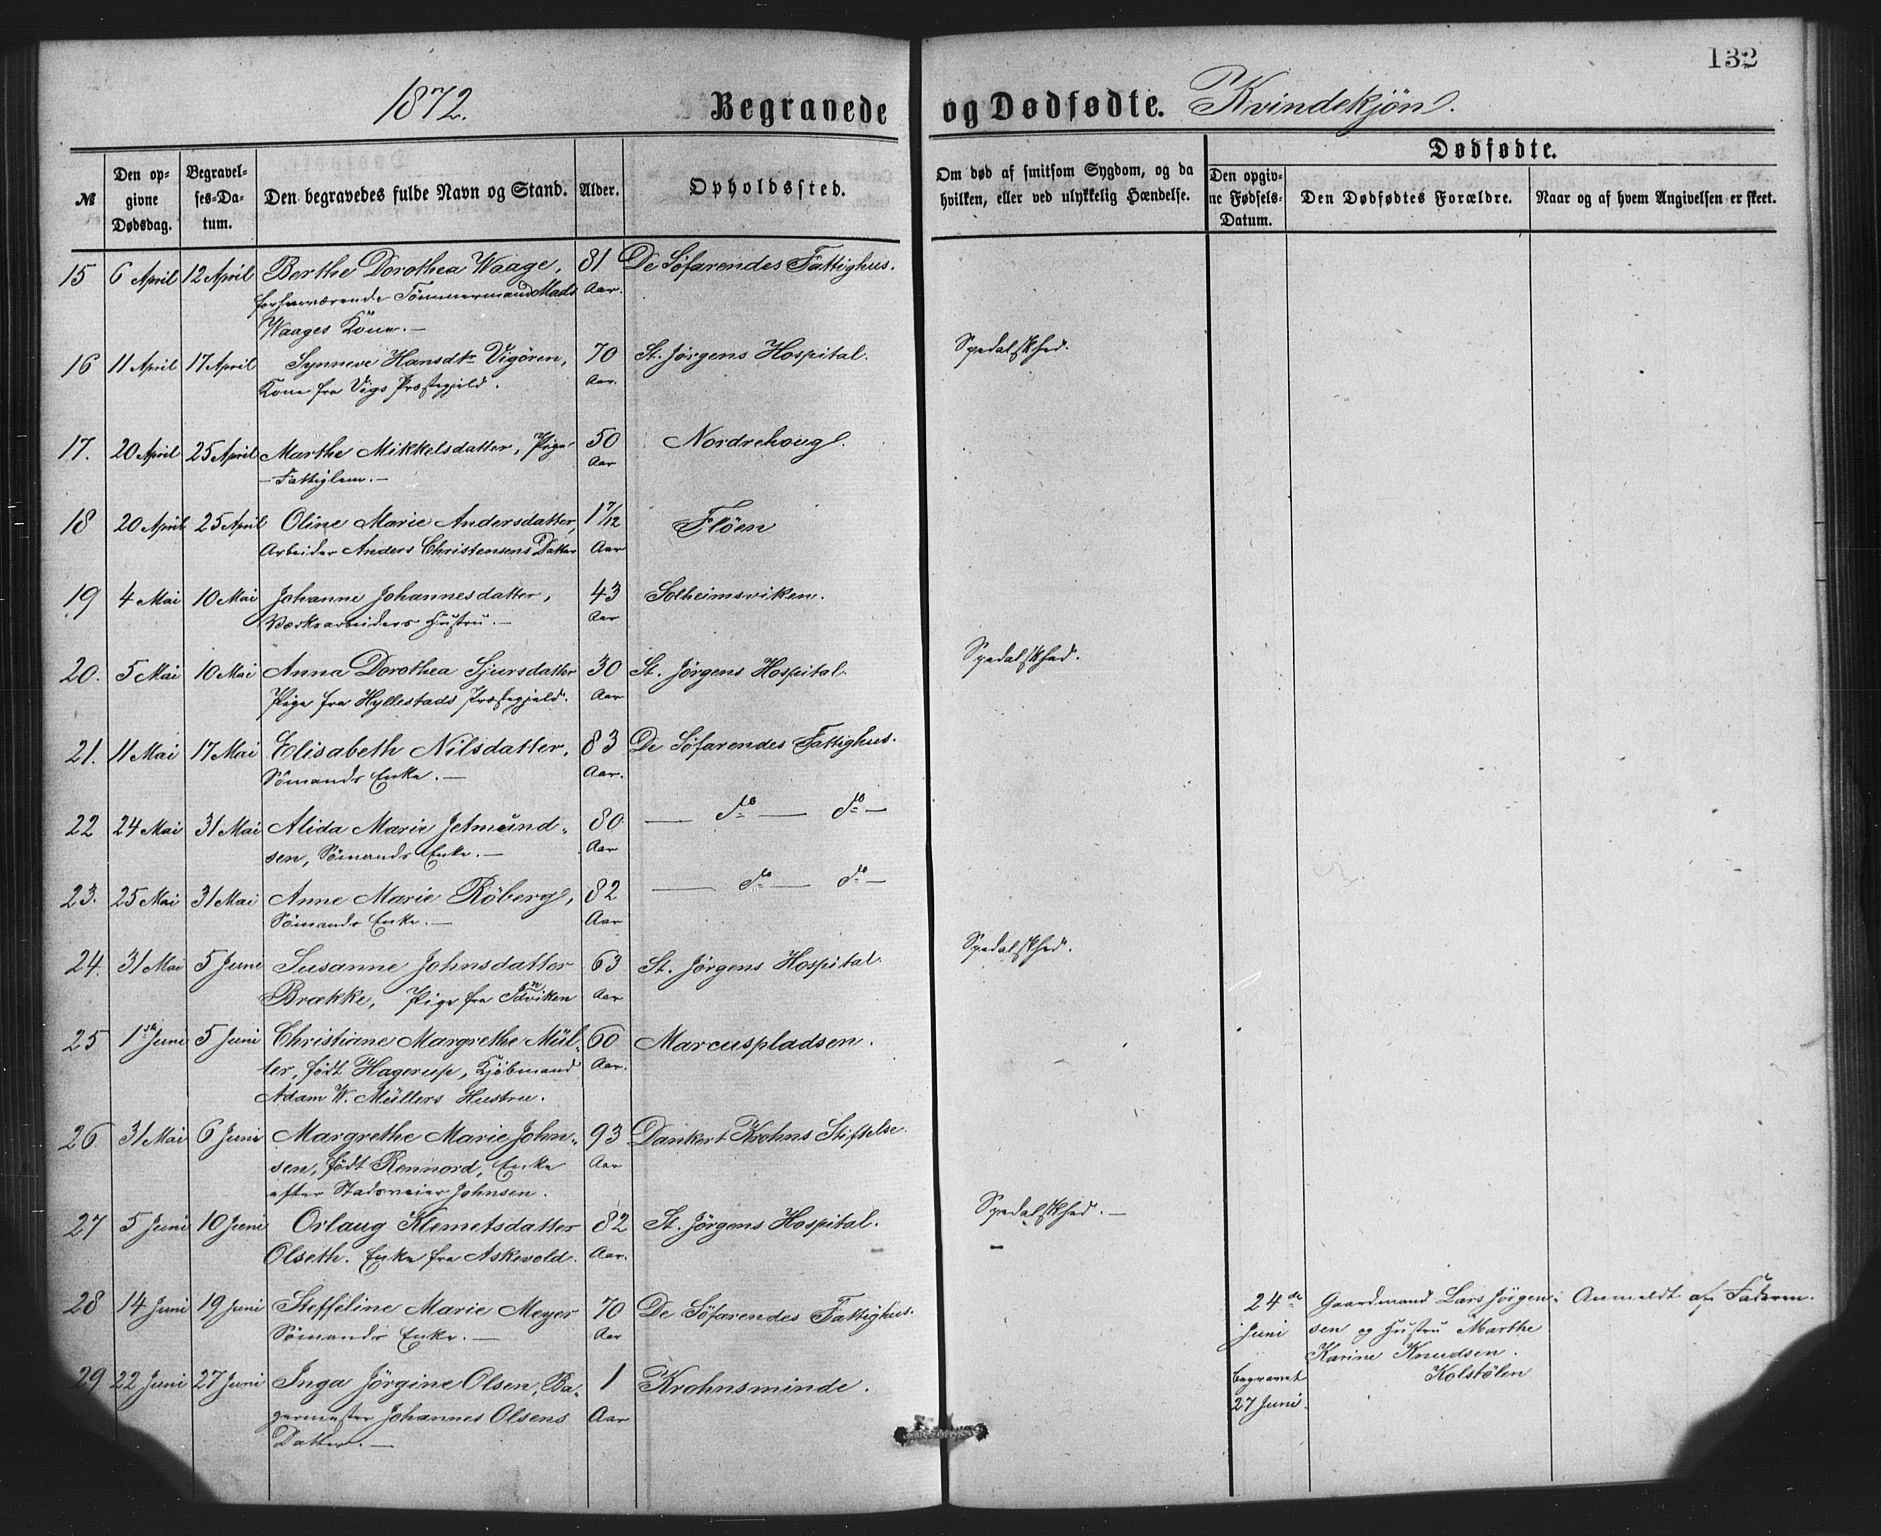 132
1872.
Begravede og Dødfødte. Kvindekjøn.
№
Den opgivne Dødsdag.
Begravelses-Datum.
Den begravedes fulde Navn og Stand.
Alder.
Opholdssted.
Om død af smitsom Sygdom, og da hvilken, eller ved ulykkelig Hændelse.
Dødfødte.
Den opgivne Fødsels-Datum.
Den Dødfødtes Forældre.
Naar og af hvem Angivelsen er skeet.
15 6 April 12 April Berthe Dorothea Waage, 81 De Söfarendes Fattighus.
forhenværende Tömmermand Mads Aar.
Waages Kone.—
16 11 April 17 April Synneve Hansdtr Vigören, 70 St. Jörgens Hospital. Spedalskhed.
Kone fra Vigs Præstegjeld. Aar.
17. 20 April 25 April Marthe Mikkelsdatter, Pige 50 Nordrehoug.
— Fattiglem.— Aar
18 20 April 25 April Oline Marie Andersdatter, 1 7/12 Flöen
Arbeider Anders Christensens Datter Aar
19 4 Mai 10 Mai Johanne Johannesdatter, 43 Solheimsviken.
Værksarbeiders Hustru.— Aar
20. 5 Mai 10 Mai Anna Dorothea Sjursdatter 30 St. Jörgens Hospital. Spedalskhed.
Pige fra Hyllestads Præstegjeld. Aar
21. 11 Mai 17 Mai Elisabeth Nilsdatter, 83 De Söfarendes Fattighus.
Sömands Enke.— Aar.
22 24 Mai 31 Mai Alida Marie Jetmund- 80 — do — do —
sen, Sömands Enke.— Aar
23. 25 Mai 31 Mai Anne Marie Röberg, 82 — do — do —
Sömands Enke.— Aar
24. 31 Mai 5 Juni Susanne Johnsdatter 63 St. Jörgens Hospital. Spedalskhed.
Brække, Pige fra Indviken Aar
25 1ste Juni 5 Juni Christiane Margrethe Mül- 60 Marcuspladsen.
ler, född Hagerup, Kjöbmand Aar.
Adam W. Müllers Hustru.
26 31 Mai 6 Juni Margrethe Marie John- 93 Dankert Krohns Stiftelse.
sen, född Rennord, Enke Aar
efter Stadsmeier Johnsen.
27 5 Juni 10 Juni Orlaug Klemetsdatter 82 St. Jörgens Hospital. Spedalskhed.—
Olseth. Enke fra Askevold. Aar.
28 14 Juni 19 Juni Steffeline Marie Meyer 70 De Söfarendes Fattighus.
Sömands Enke.— Aar
29 22 Juni 27 Juni Inga Jörgine Olsen, Ba- 1 Krohnsminde.
germester Johannes Olsens Aar
Datter.—
24de Gaardmand Lars Jörgen- Anmeldt af Faderen.
Juni sen og Hustru Marthe
Karine Knudsen.
begravet Kolstölen
27 Juni.